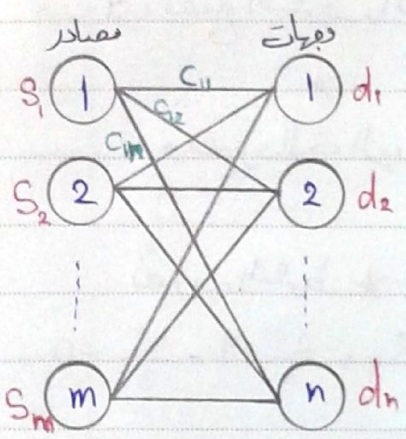 مصادر وجهات
S₁ 1 C₁₁ 1 d₁
C₁₂
C₁ₙ
S₂ 2 2 d₂
Sₘ m n dₙ